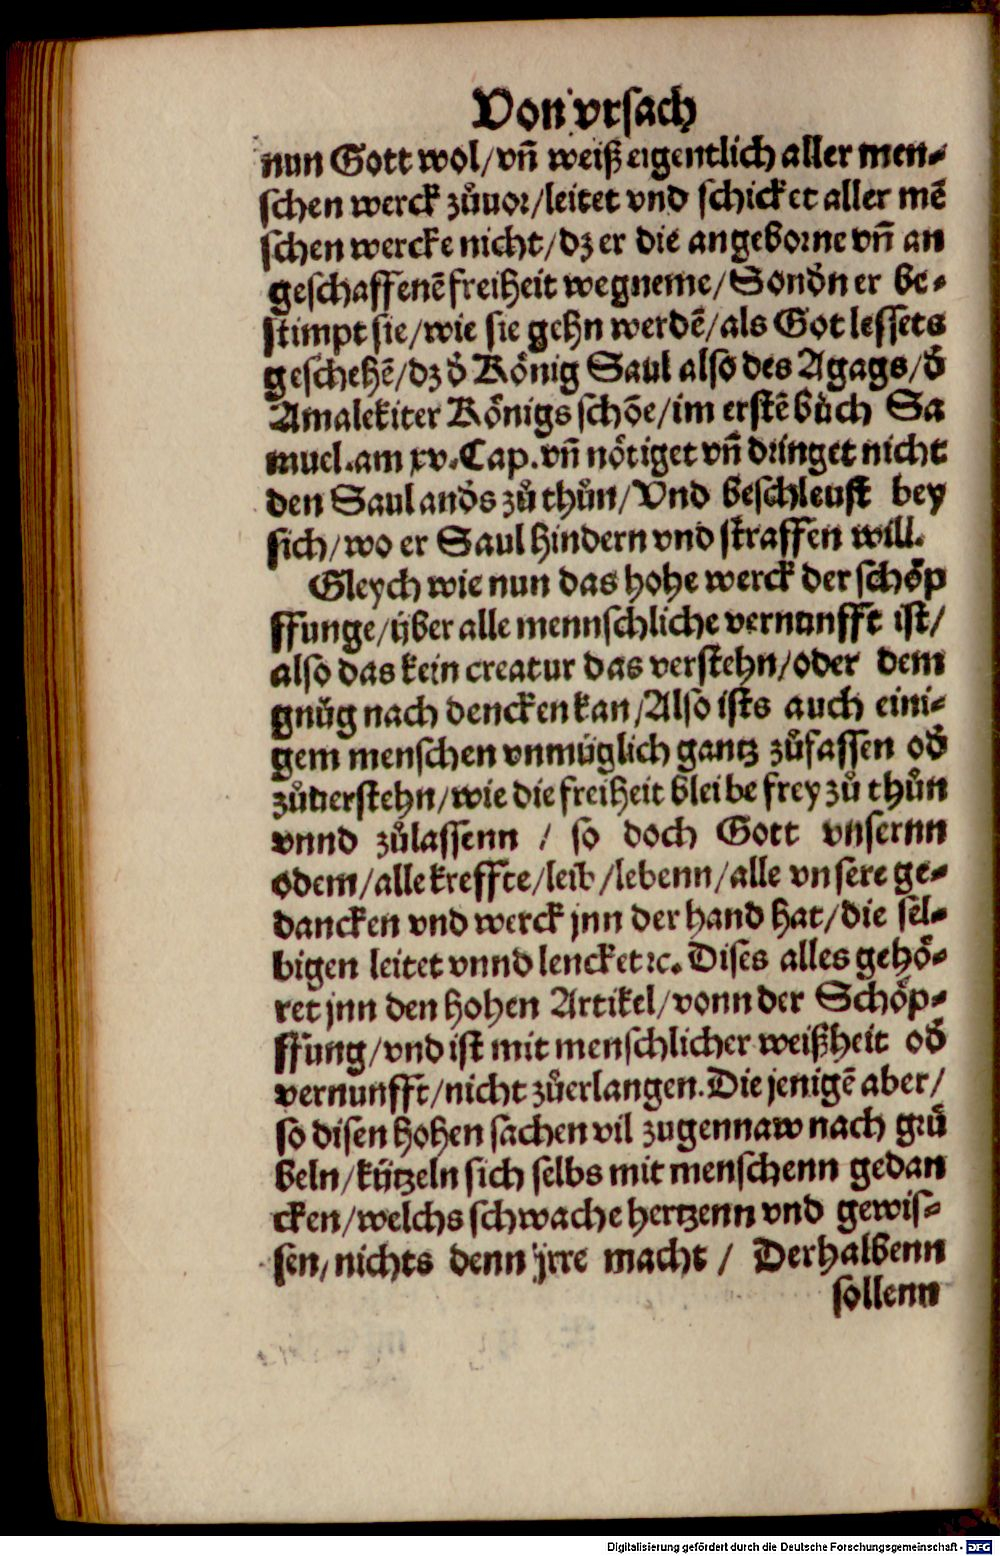 Von vrsach
nun Gott wol/vn̄ weiß eigentlich aller men-
schen werck zůuor/leitet vnd schicket aller mē
schen wercke nicht/dz er die angeborne vn̄ an
geschaffenē freiheit wegneme/Sondn̄ er be-
stimpt sie/wie sie gehn werdē/als Got lessets
geschehē/dz d̄ König Saul also des Agags/d̄
Amalekiter Königs schōe/im erstē bůch Sa
muel.am xv.Cap.vn̄ nötiget vn̄ dringet nicht
den Saul and̄s zů thůn/Vnd beschleust bey
sich/wo er Saul hindern vnd straffen will.
Gleych wie nun das hohe werck der schöp
ffunge/über alle mennschliche vernunfft ist/
also das kein creatur das verstehn/oder dem
gnůg nach dencken kan/Also ists auch eini-
gem menschen vnmüglich gantz zůfassen od̄
zůuerstehn/wie die freiheit bleibe frey zů thůn
vnnd zůlassenn / so doch Gott vnsernn
odem/alle kreffte/leib/lebenn/alle vnsere ge-
dancken vnd werck jnn der hand hat/die sel-
bigen leitet vnnd lencket ꝛc. Dises alles gehö-
ret jnn den hohen Artikel/vonn der Schöp-
ffung/vnd ist mit menschlicher weißheit od̄
vernunfft/nicht zůerlangen. Die jenigē aber/
so disen hohen sachen vil zugennaw nach grü
beln/kützeln sich selbs mit menschenn gedan
cken/welchs schwache hertzenn vnd gewis-
sen/nichts denn jrre macht / Derhalbenn
sollenn
Digitalisierung gefördert durch die Deutsche Forschungsgemeinschaft - DFG